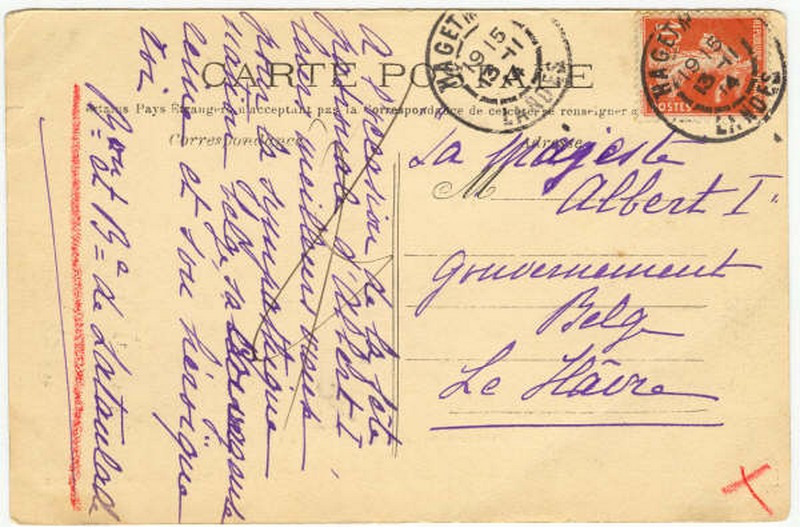 CARTE POSTALE
Certains Pays Etrangers n'acceptant pas la correspondance de ce côté se renseigner
Correspondance
Adresse
HAGETMAU
19 15
13 - 11
14
LANDES
HAGETM
19 15
13 - 11
14
LANDES
POSTES
M
Sa Majesté
Albert Iᵉʳ
Gouvernement
Belge
Le Hâvre
A l'occasion de la fête
Patronale d'Albert I
les meilleurs vœux
pour la sympathique
nation belge, sa
reine et son héroïque
roi
Bᵒⁿ et Bⁿᵉ de Lataulade